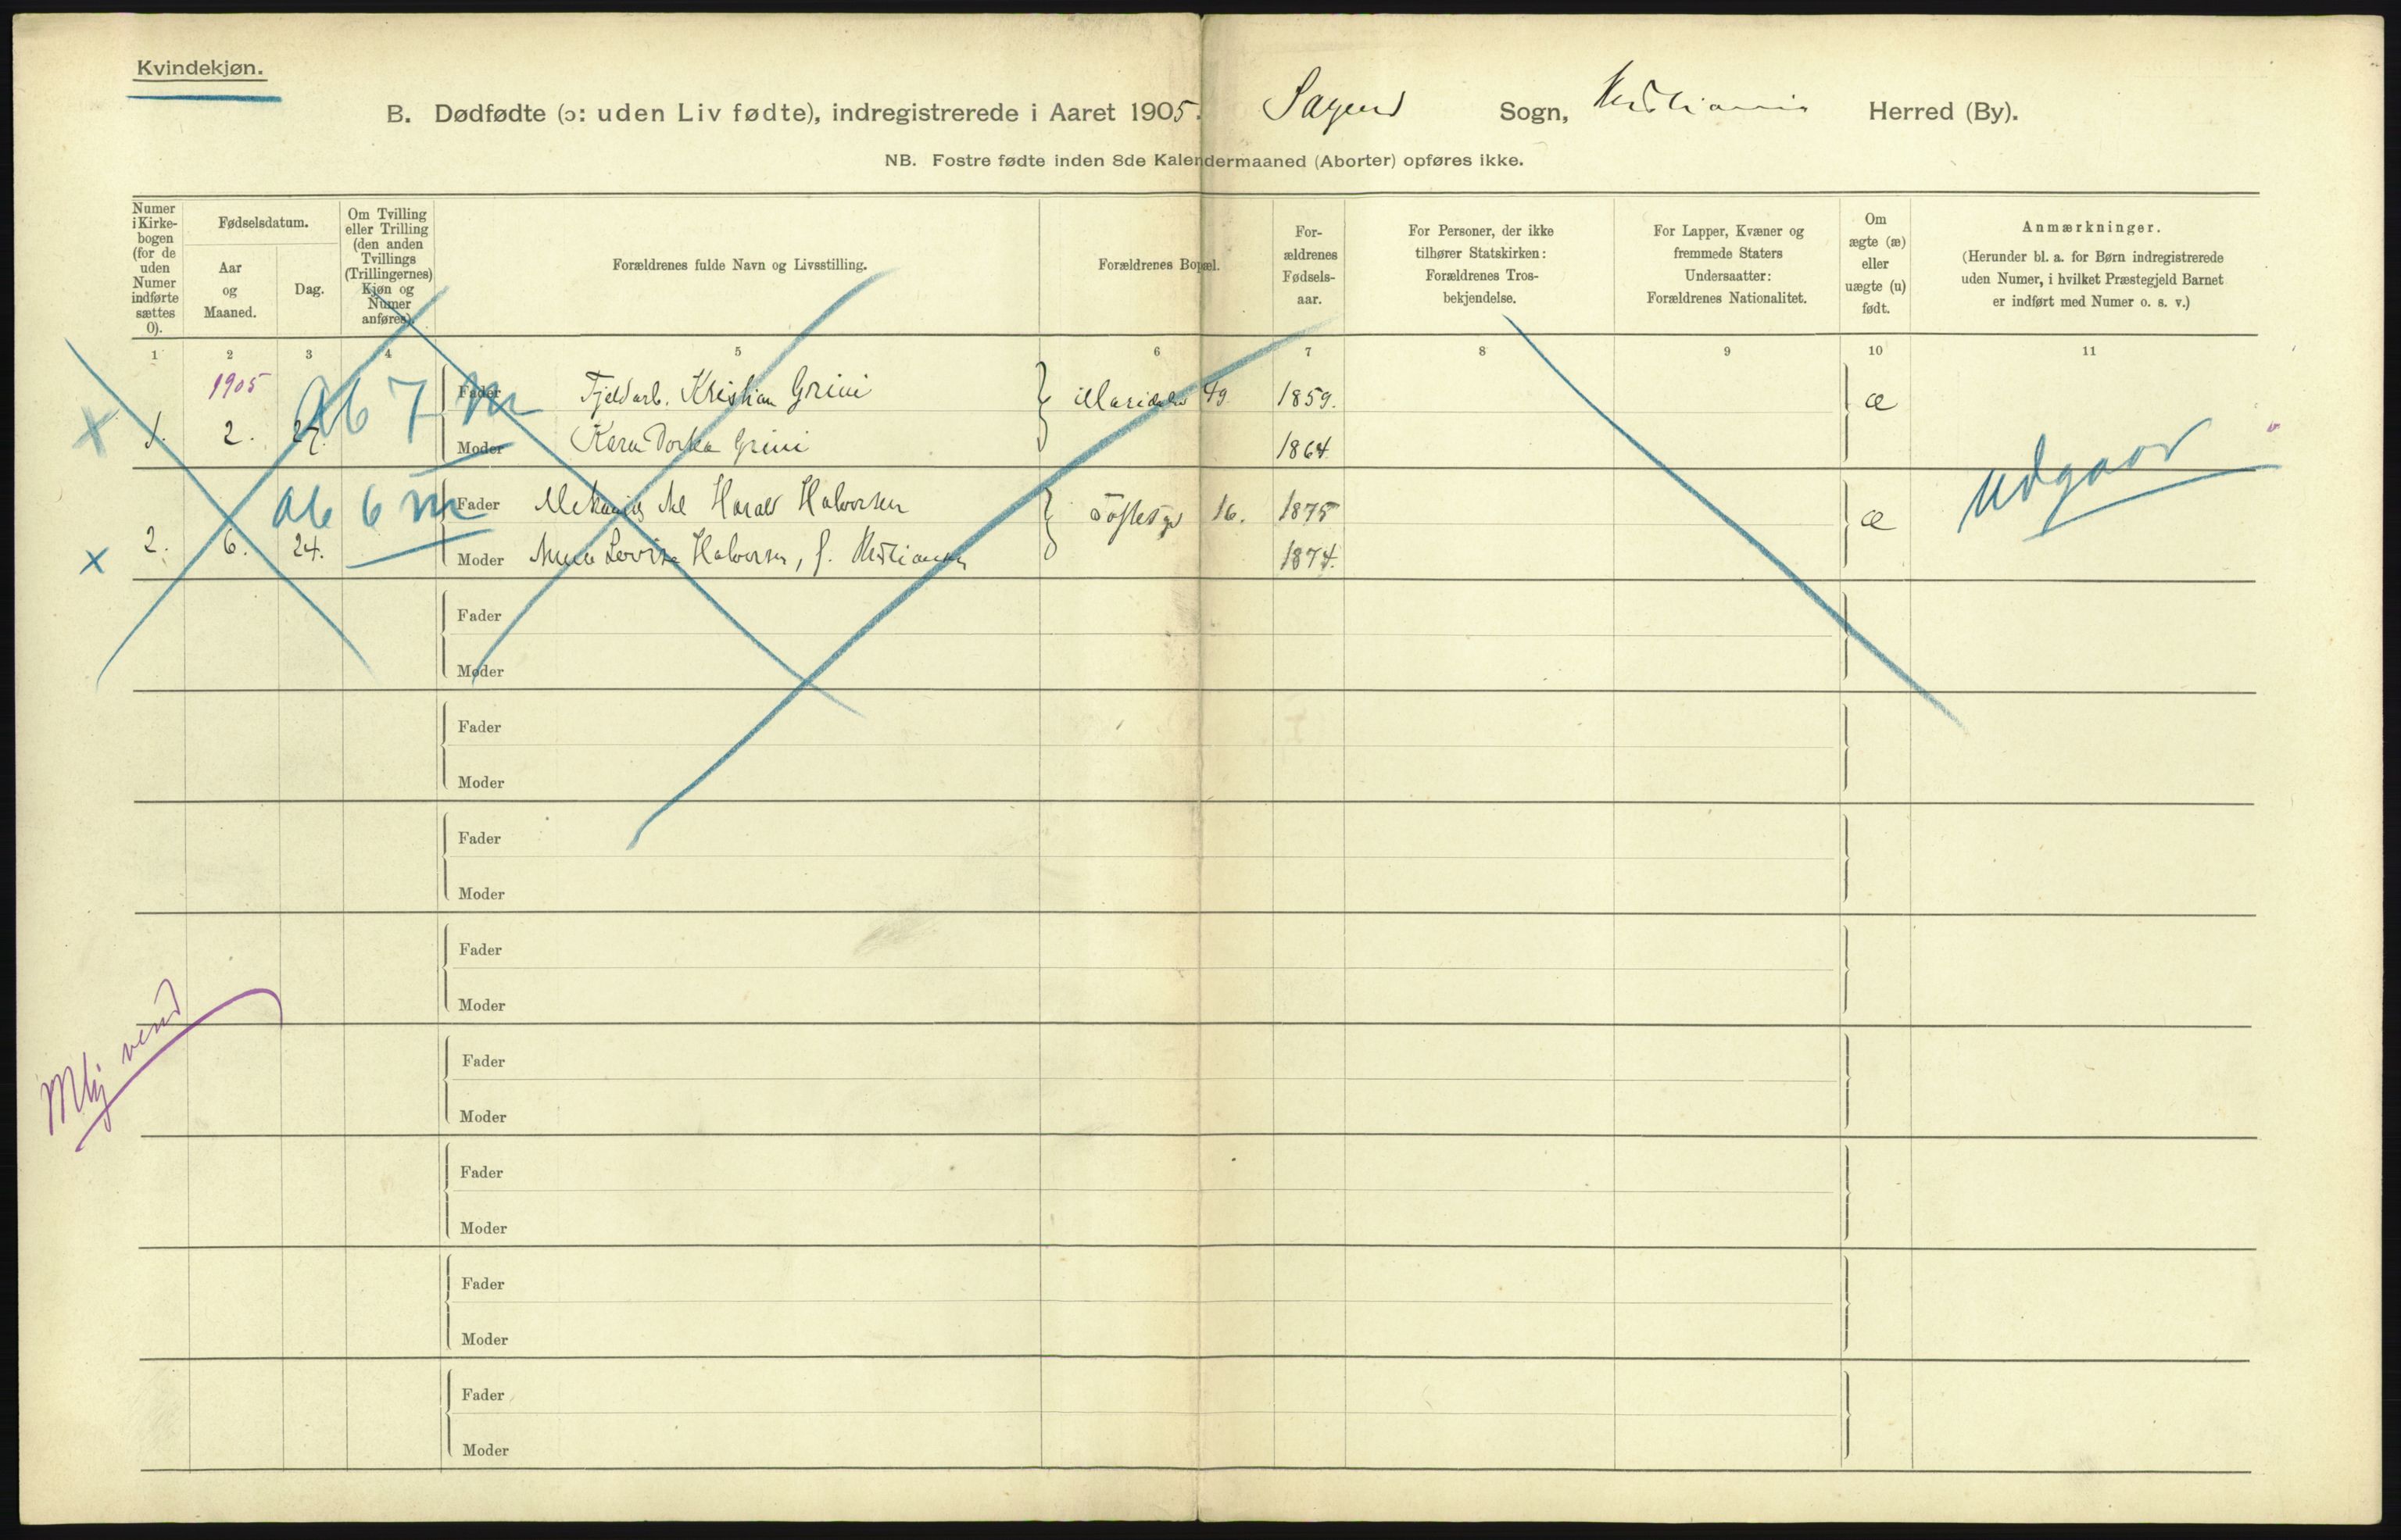 Kvindekjøn.
B. Dødfødte (ɔ: uden Liv fødte), indregistrerede i Aaret 1905. Sagens Sogn, Kristiania Herred (By).
NB. Fostre fødte inden 8de Kalendermaaned (Aborter) opføres ikke.
Numer i Kirke-bogen (for de uden Numer indførte sættes 0).
Fødselsdatum.
Aar og Maaned.
Dag.
Om Tvilling eller Trilling (den anden Tvillings (Trillingernes) Kjøn og Numer anføres).
Forældrenes fulde Navn og Livsstilling.
Forældrenes Bopæl.
For-ældrenes Fødsels-aar.
For Personer, der ikke tilhører Statskirken: Forældrenes Tros-bekjendelse.
For Lapper, Kvæner og fremmede Staters Undersaatter: Forældrenes Nationalitet.
Om ægte (æ) eller uægte (u) født.
Anmærkninger.
(Herunder bl. a. for Børn indregistrerede uden Numer, i hvilket Præstegjeld Barnet er indført med Numer o. s. v.)
1 2 3 4 5 6 7 8 9 10 11
1905
Ab 7 m
Fader Fjeldarb. Kristian Grini 49 1859. æ
x 1. 2. 27. Moder Kara Dorthea Grini 1864
udgaar
Ab 6 m
Fader Harald Halvorsen 16. 1875 æ
x 2. 6. 24. Moder Anna Lovise Halvorsen, f. Kristiansen 1874.
Fader
Moder
Fader
Moder
Fader
Moder
Fader
Moder
Mkj vend
Fader
Moder
Fader
Moder
Fader
Moder
Fader
Moder